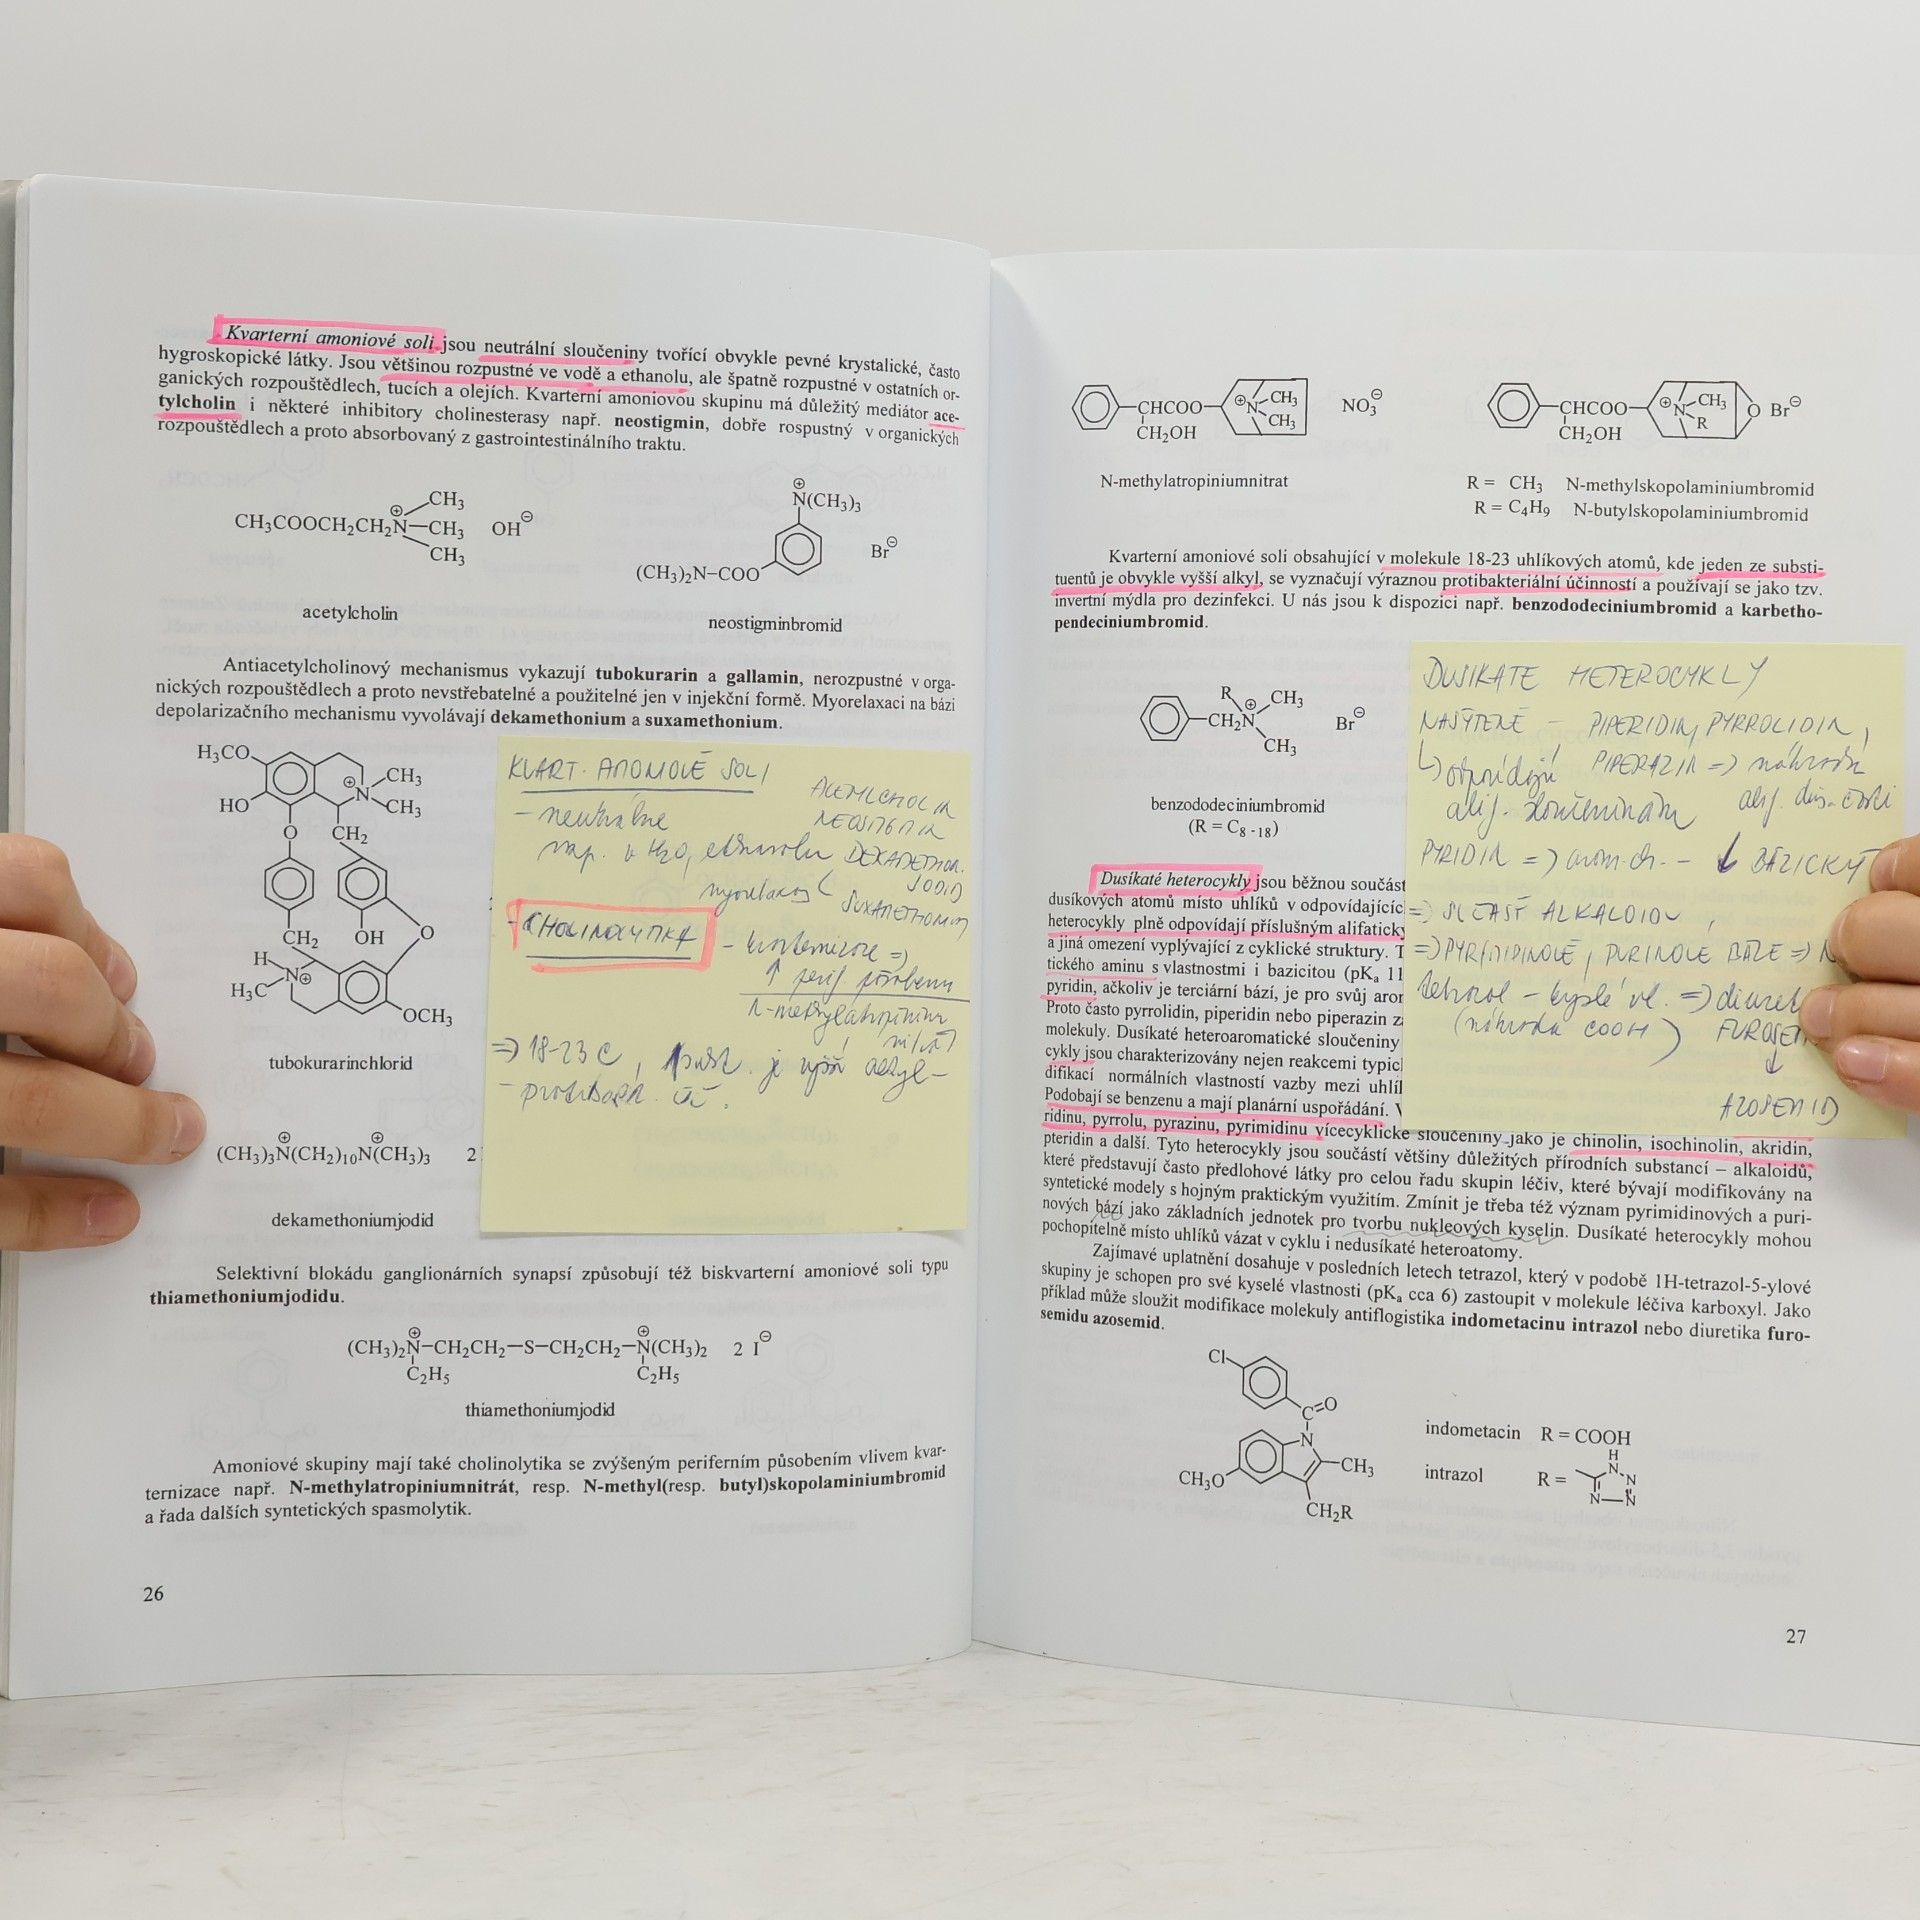 Kvarterní amoniové soli jsou neutrální sloučeniny tvořící obvykle pevné krystalické, často
hygroskopické látky. Jsou většinou rozpustné ve vodě a ethanolu, ale špatně rozpustné v ostatních or-
ganických rozpouštědlech, tucích a olejích. Kvarterní amoniovou skupinu má důležitý mediátor ace-
tylcholin i některé inhibitory cholinesterasy např. neostigmin, dobře rospustný v organických
rozpouštědlech a proto absorbovaný z gastrointestinálního traktu.
CH₃COOCH₂CH₂N⊕
CH₃
CH₃
CH₃
OH⊖
acetylcholin
⊕
N(CH₃)₃
(CH₃)₂N–COO
Br⊖
neostigminbromid
Antiacetylcholinový mechanismus vykazují tubokurarin a gallamin, nerozpustné v orga-
nických rozpouštědlech a proto nevstřebatelné a použitelné jen v injekční formě. Myorelaxaci na bázi
depolarizačního mechanismu vyvolávají dekamethonium a suxamethonium.
H₃CO
HO
⊕
N
CH₃
CH₃
O
CH₂
CH₂
OH
O
H
N⊕
H₃C
OCH₃
tubokurarinchlorid
(CH₃)₃N⊕(CH₂)₁₀N⊕(CH₃)₃ 2
dekamethoniumjodid
KVART. AMONIOVÉ SOLI
- neutrální
ACETYLCHOLIN
NEOSTIGMIN
DEKAMETHON.
JODID
SUXAMETHONIUM
CHOLINOLYTIKA
↑ perif. působení
N-methylatropinium
nitrát
=> 18-23 C,
je vyšší alkyl -
Selektivní blokádu ganglionárních synapsí způsobují též biskvarterní amoniové soli typu
thiamethoniumjodidu.
(CH₃)₂N⊕–CH₂CH₂–S–CH₂CH₂–N⊕(CH₃)₂ 2 I⊖
C₂H₅ C₂H₅
thiamethoniumjodid
Amoniové skupiny mají také cholinolytika se zvýšeným periferním působením vlivem kvar-
ternizace např. N-methylatropiniumnitrát, resp. N-methyl(resp. butyl)skopolaminiumbromid
a řada dalších syntetických spasmolytik.
26
CHCOO
CH₂OH
⊕N
CH₃
CH₃
NO₃⊖
N-methylatropiniumnitrat
CHCOO
CH₂OH
⊕N
CH₃
R
O
Br⊖
R = CH₃ N-methylskopolaminiumbromid
R = C₄H₉ N-butylskopolaminiumbromid
Kvarterní amoniové soli obsahující v molekule 18-23 uhlíkových atomů, kde jeden ze substi-
tuentů je obvykle vyšší alkyl, se vyznačují výraznou protibakteriální účinností a používají se jako tzv.
invertní mýdla pro dezinfekci. U nás jsou k dispozici např. benzododeciniumbromid a karbetho-
pendeciniumbromid.
R
CH₂N⊕
CH₃
CH₃
Br⊖
benzododeciniumbromid
(R = C₈₋₁₈)
DUSIKATÉ HETEROCYKLY
NASYTENÉ - PIPERIDIN, PYRROLIDIN,
PIPERAZIN => náhrada
↳ odpovídají
alif. sloučeninám
PYRIDIN => arom. ch. - ↓ BAZICKÝ
=> SÚČASŤ ALKALOIDOV
=> PYRIMIDINOVÉ, PURINOVÉ BÁZE => N
tetrazol - kyslé vl. => diuret
(náhrada COOH)
FUROSEM
↓
AZOSEMID
Dusíkaté heterocykly jsou běžnou součást
dusíkových atomů místo uhlíků v odpovídajícíc
heterocykly plně odpovídají příslušným alifatický
a jiná omezení vyplývající z cyklické struktury. T
tického aminu s vlastnostmi i bazicitou (pKₐ 11
pyridin, ačkoliv je terciární bází, je pro svůj aror
Proto často pyrrolidin, piperidin nebo piperazin z
molekuly. Dusíkaté heteroaromatické sloučeniny
cykly jsou charakterizovány nejen reakcemi typic
difikací normálních vlastností vazby mezi uhlíl
Podobají se benzenu a mají planární uspořádání.
ridinu, pyrrolu, pyrazinu, pyrimidinu vícecyklické sloučeniny jako je chinolin, isochinolin, akridin,
pteridin a další. Tyto heterocykly jsou součástí většiny důležitých přírodních substancí – alkaloidů,
které představují často předlohové látky pro celou řadu skupin léčiv, které bývají modifikovány na
syntetické modely s hojným praktickým využitím. Zmínit je třeba též význam pyrimidinových a puri-
nových bází jako základních jednotek pro tvorbu nukleových kyselin. Dusíkaté heterocykly mohou
pochopitelně místo uhlíků vázat v cyklu i nedusíkaté heteroatomy.
Zajímavé uplatnění dosahuje v posledních letech tetrazol, který v podobě 1H-tetrazol-5-ylové
skupiny je schopen pro své kyselé vlastnosti (pKₐ cca 6) zastoupit v molekule léčiva karboxyl. Jako
příklad může sloužit modifikace molekuly antiflogistika indometacinu intrazol nebo diuretika furo-
semidu azosemid.
Cl
C=O
N
CH₃
CH₃O
CH₂R
indometacin R = COOH
intrazol R =
H
N
N
N
N
27